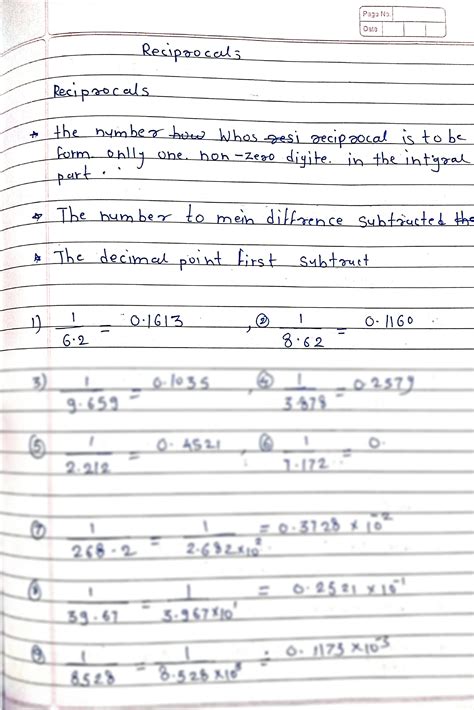 Page No.
Date
Reciprocals
Reciprocals
* the number how Whos resi reciprocal is to be
form. onlly one. non-zero digite. in the intgral
part.
* The number to mein diffrence subtructed the
* The decimal point first subtruct
1) 1/6.2 = 0.1613 , ② 1/8.62 = 0.1160
3) 1/9.659 = 0.1035 , ④ 1/3.878 = 0.2579
⑤ 1/2.212 = 0.4521 , ⑥ 1/7.172 = 0.
⑦ 1/268.2 = 1/2.682×10² = 0.3728 × 10⁻²
⑧ 1/39.67 = 1/3.967×10¹ = 0.2521 × 10⁻¹
⑨ 1/8528 = 1/8.528×10³ = 0.1173 ×10⁻³